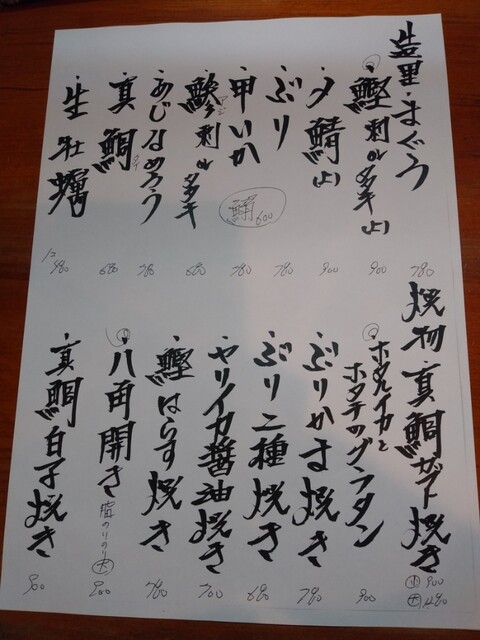 造里・まぐろ 780
・鰹刺orタタキ(上) 900
・〆鯖(上) 900
・ぶり 780
・甲いか 780
鯖 600
・鰺刺orタタキ 680
・あじなめろう 780
・真鯛 680
・生牡蠣 1ヶ 480
焼物・真鯛カブト焼き 小 900 大 1480
・ホタルイカとホタテのグラタン 900
・ぶりかま焼き 780
・ぶり二種焼き 680
・ヤリイカ醤油焼き 700
・鰹はらす焼き 780
・八角開き 脂のりのり 大 800
・真鯛白子焼き 900